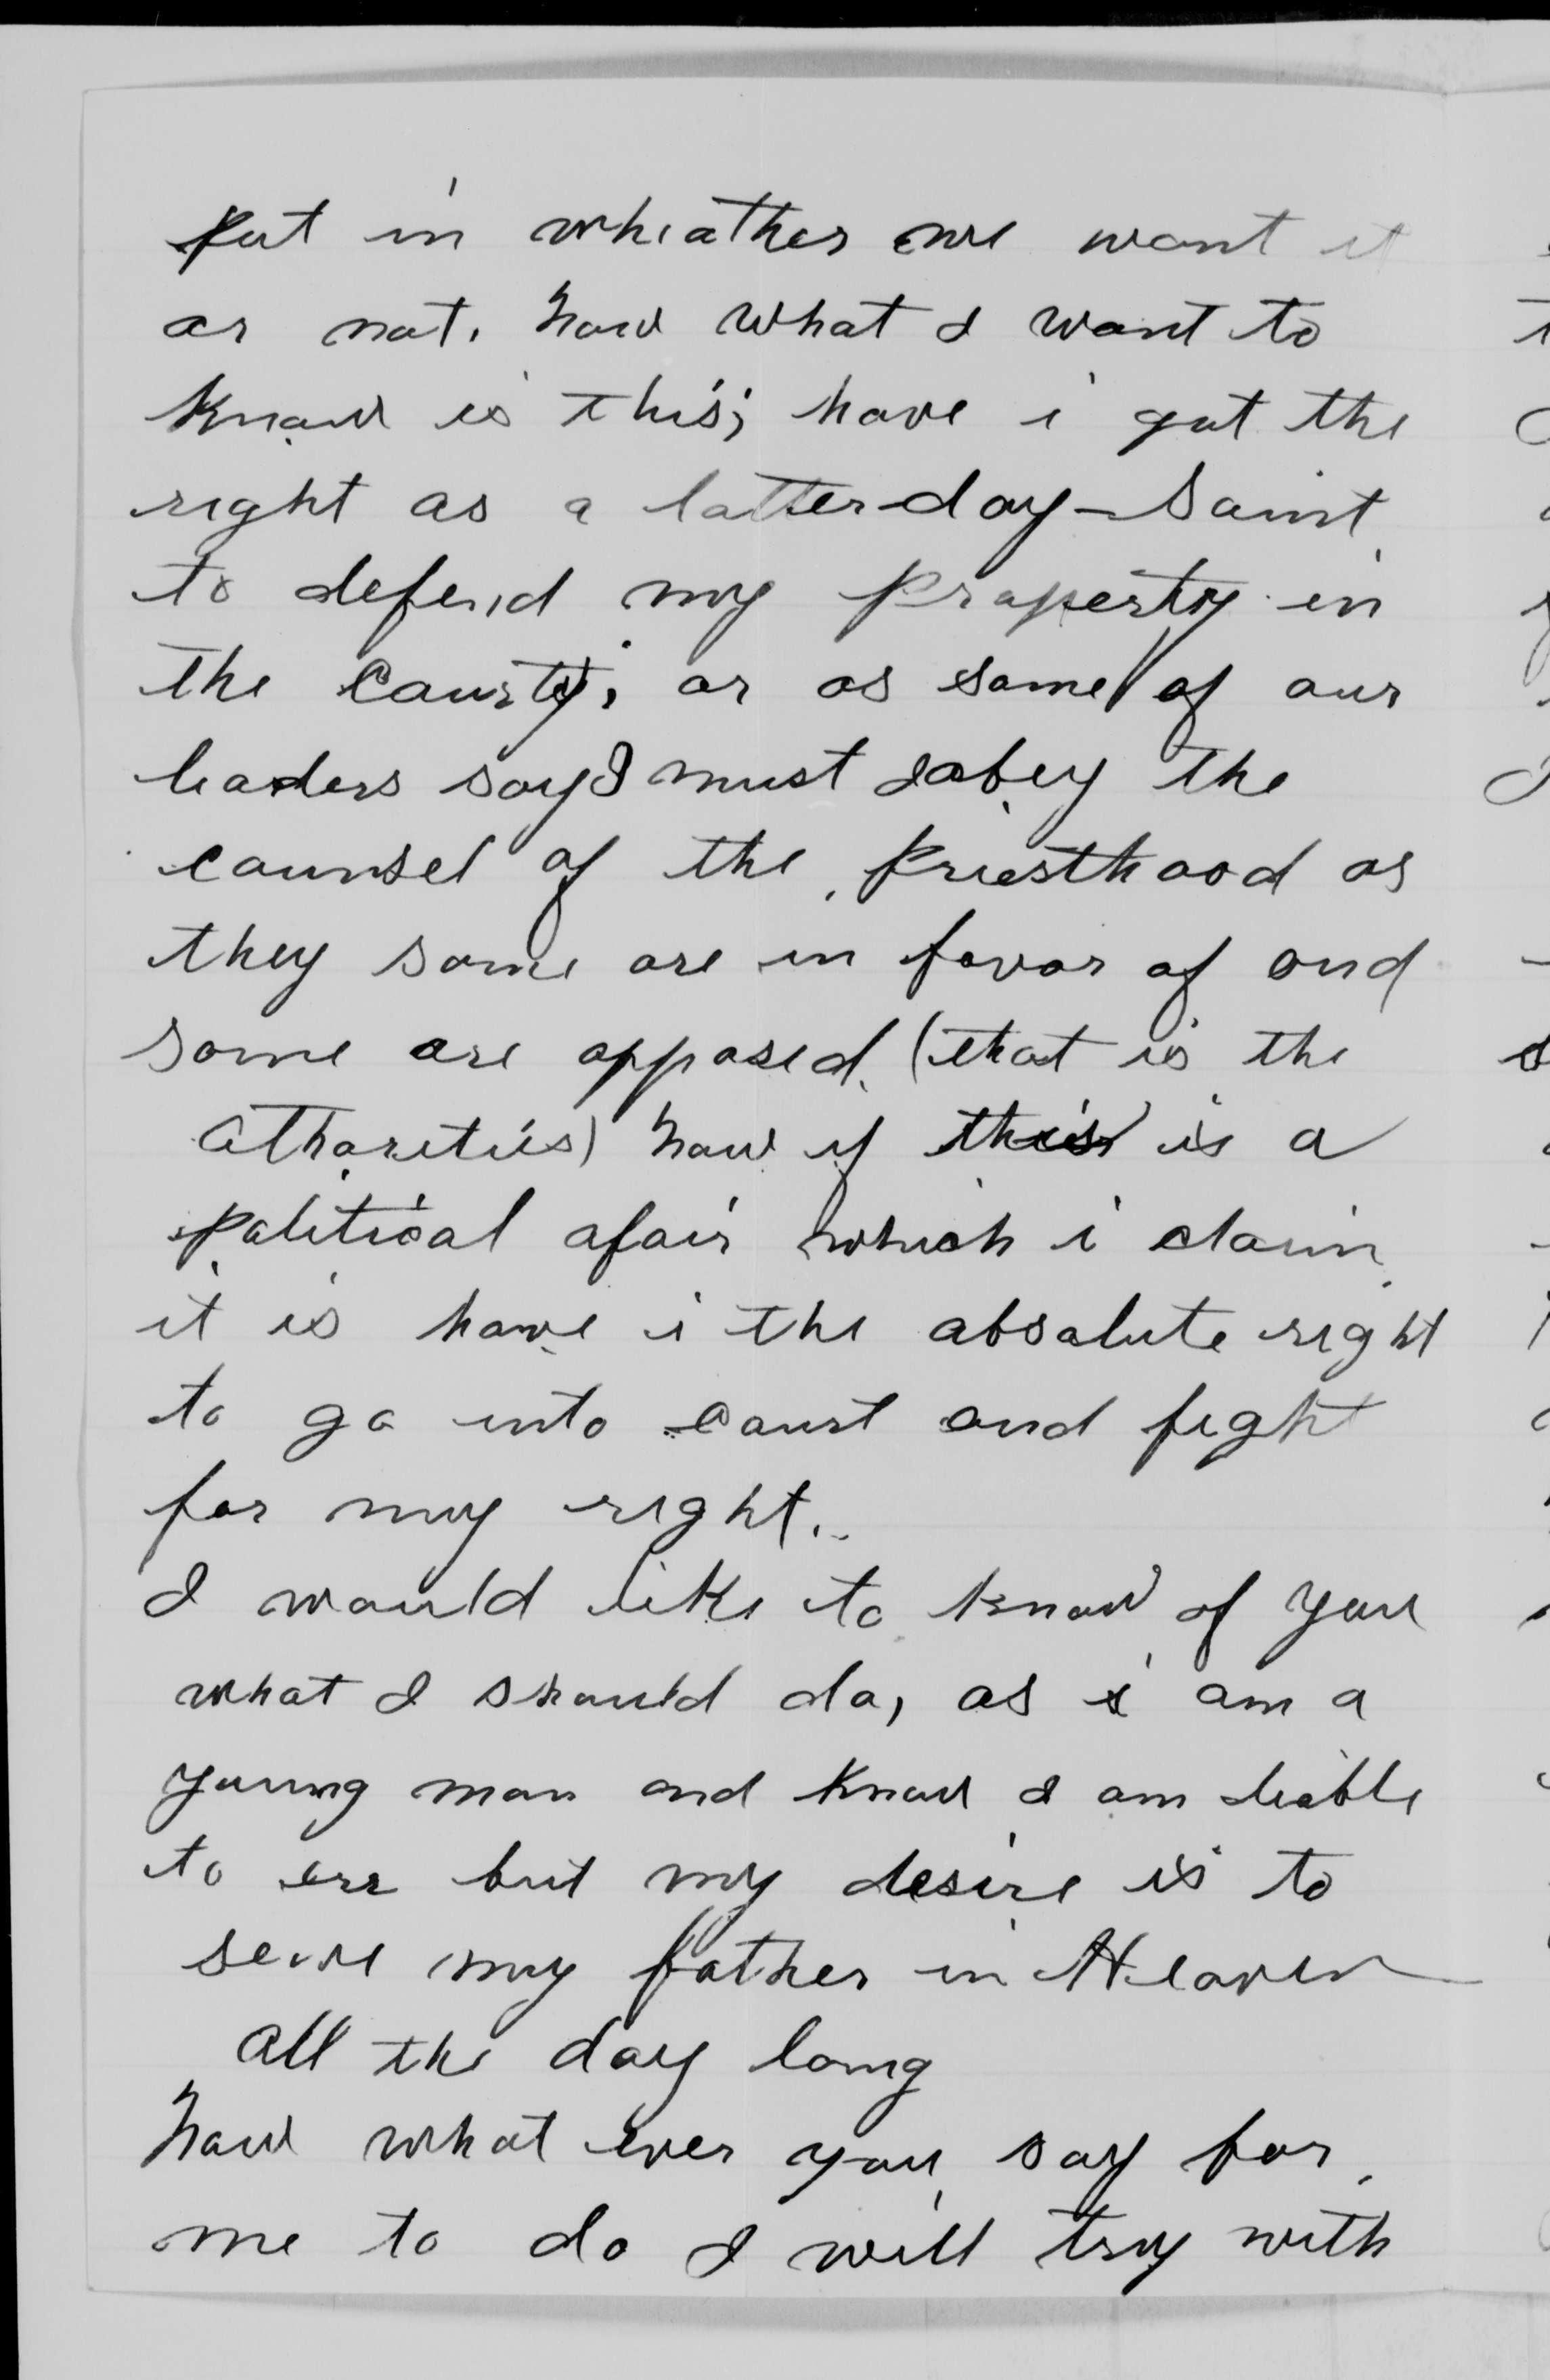 put in wheather we want it
or not. Now what I want to
know is this; have i got the
right as a latter-day-Saint
to defend my property in
the Courts, or as some of our
leaders say I must obey the
counsel of the Priesthood as
they some are in favor of and
some are opposed. (that is the
Athorities) Now if this is a
political afair which i claim
it is have i the absolute right
to go into court and fight
for my right.
I would like to know of you
what I should do, as i am a
young man and know I am liable
to err but my desire is to
serve my father in Heaven
all the day long
Now what ever you say for
me to do I will try with